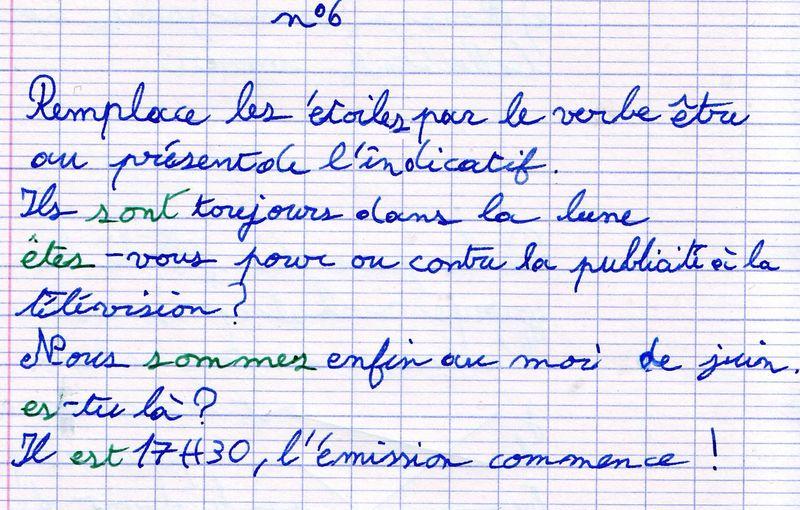 n°6
Remplace les étoiles par le verbe être
au présent de l'indicatif.
Ils sont toujours dans la lune
êtes-vous pour ou contre la publicité à la
télévision ?
Nous sommes enfin au moi de juin.
es-tu là ?
Il est 17H30, l'émission commence !